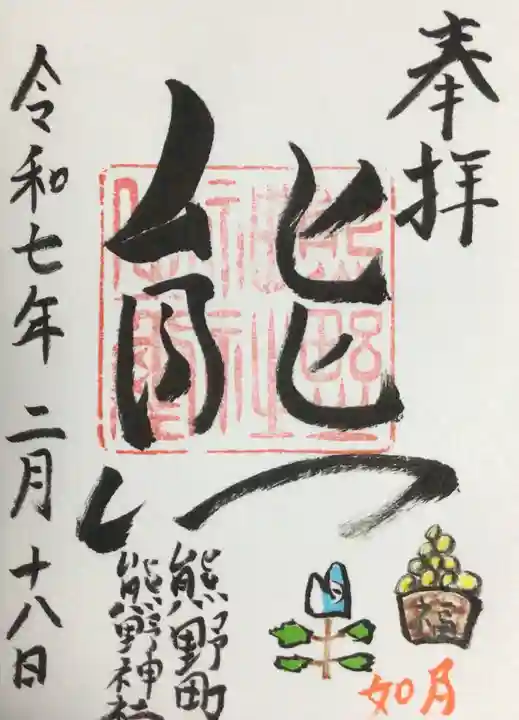 奉拝
熊
熊野町
熊野神社
令和七年二月十八日
福
如月